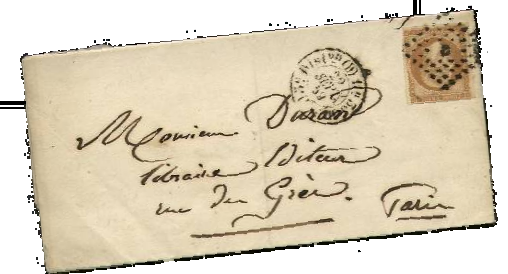 Monsieur Durand
libraire Editeur
rue des Grès.
Paris